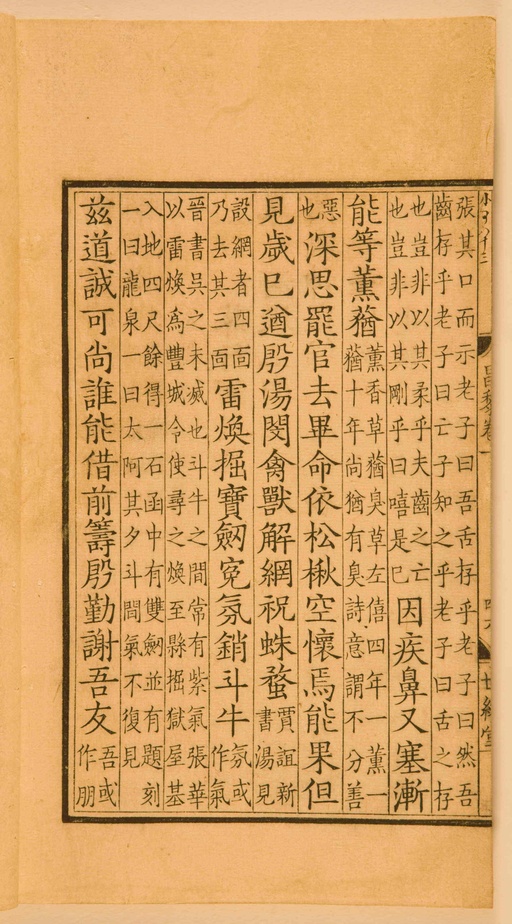 昌黎卷一
張其口而示老子曰吾舌存乎老子曰然吾
齒存乎老子曰亡子知之乎老子曰舌之存
也豈非以其柔乎夫齒之亡
也豈非以其剛乎曰嘻是已
因疾鼻又塞漸
能等薰蕕
薰香草蕕臭草左僖四年一薰一
蕕十年尚猶有臭詩意謂不分善
惡
也
深思罷官去畢命依松楸空懷焉能果但
見歲已遒殷湯閔禽獸解網祝蛛蝥
賈誼新
書湯見
設網者四面
乃去其三面
雷煥掘寶劒冤氛銷斗牛
氛或
作氣
晉書吳之未滅也斗牛之間常有紫氣張華
以雷煥爲豐城令使尋之煥至縣掘獄屋基
入地四尺餘得一石函中有雙劒並有題刻
一曰龍泉一曰太阿其夕斗間氣不復見
茲道誠可尚誰能借前籌殷勤謝吾友
吾或
作朋